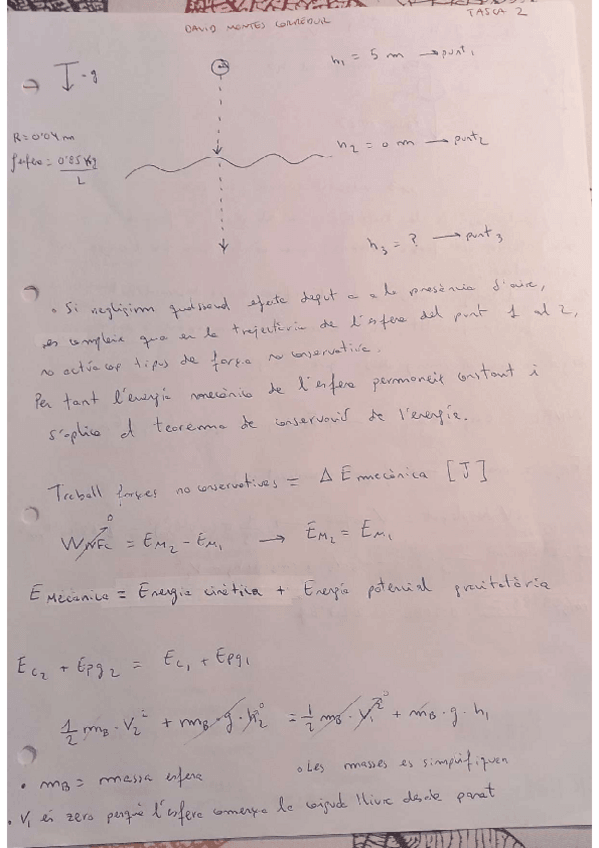 TASCA 2
DAVID MONTES
h₁ = 5 m → punt₁
-g
R = 0'04 m
ρesfera = 0'85 Kg/L
h₂ = 0 m → punt₂
h₃ = ? → punt₃
• Si negligim qualsevol efecte degut a a la presència d'aire,
es compleix que en la trajectòria de l'esfera del punt 1 al 2,
no actúa cap tipus de força no conservativa.
Per tant l'energia mecànica de l'esfera permaneix constant i
s'aplica el teorema de conservació de l'energía.
Treball forçes no conservatives = Δ E mecànica [J]
W_NFC⁰ = E_M₂ - E_M₁ → E_M₂ = E_M₁
E Mecànica = Energia cinètica + Energía potencial gravitatòria
E_C₂ + Epg₂ = E_C₁ + Epg₁
1/2 m_B · V₂² + m_B · g · h₂⁰ = 1/2 m_B · V₁²⁰ + m_B · g · h₁
• m_B = massa esfera
• Les masses es simplifiquen
• V₁ és zero perquè l'esfera comença la caiguda lliure desde parat